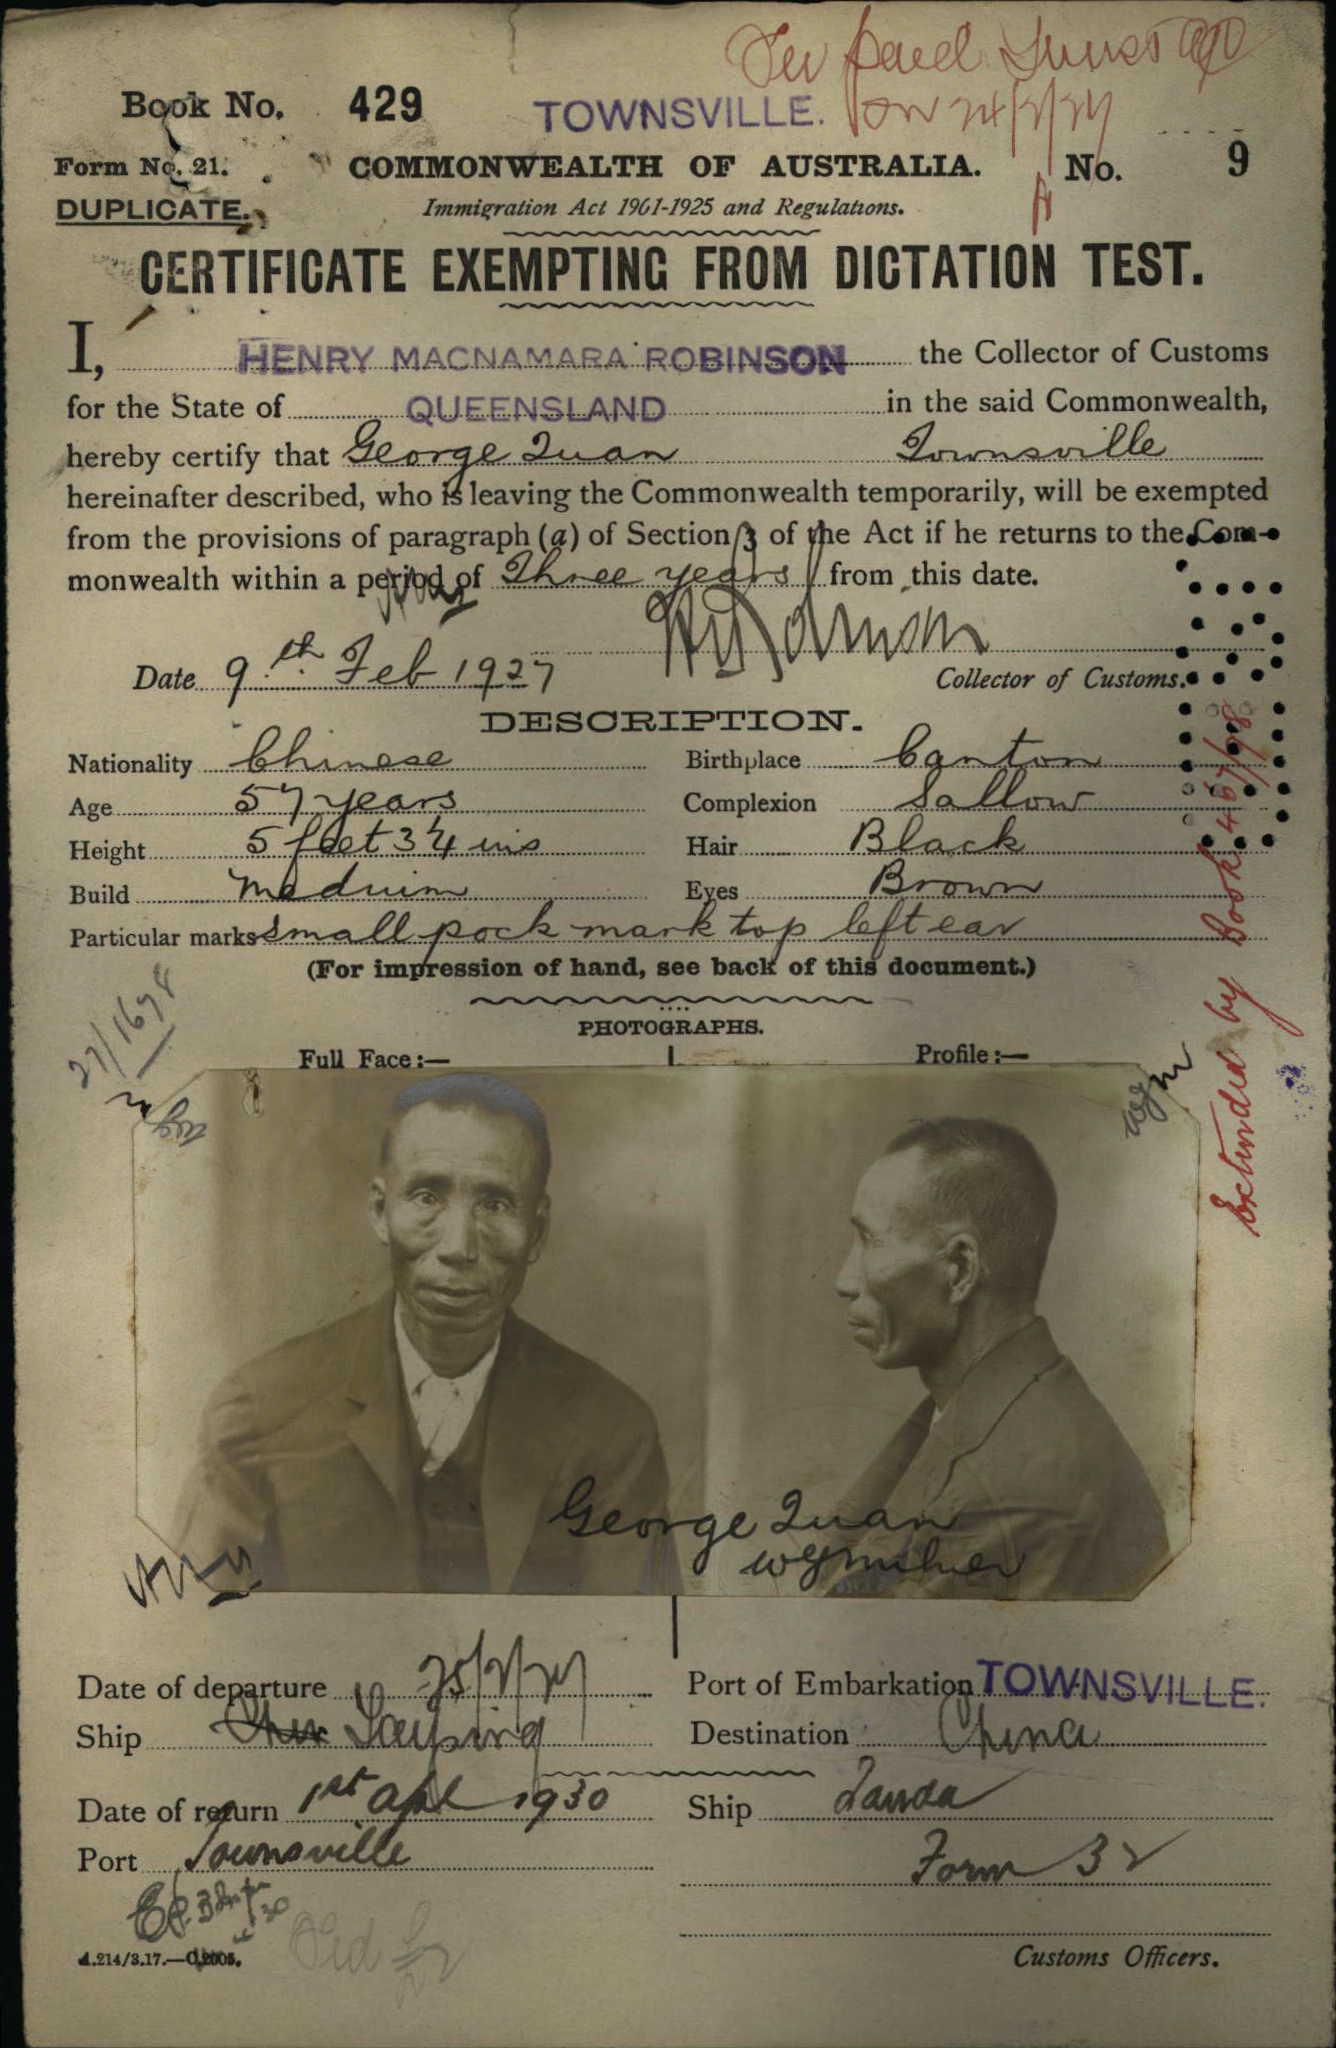 Book No. 429 TOWNSVILLE.
paid
on 24/2/27
Form No. 21. COMMONWEALTH OF AUSTRALIA. No. 9
DUPLICATE. Immigration Act 1901-1925 and Regulations.
CERTIFICATE EXEMPTING FROM DICTATION TEST.
I, HENRY MACNAMARA ROBINSON the Collector of Customs
for the State of QUEENSLAND in the said Commonwealth,
hereby certify that George Quan Townsville
hereinafter described, who is leaving the Commonwealth temporarily, will be exempted
from the provisions of paragraph (a) of Section 3 of the Act if he returns to the Com-
monwealth within a period of Three years from this date.
Date 9th Feb 1927 Collector of Customs.
DESCRIPTION.
Nationality Chinese Birthplace Canton
Age 57 years Complexion Sallow
Height 5 feet 3¼ ins Hair Black
Build Medium Eyes Brown
Particular marks Small pock mark top left ear
(For impression of hand, see back of this document.)
PHOTOGRAPHS.
Full Face:— Profile:—
27/1678
Extended by Book 467/98
George Quan
Date of departure 25/2/27 Port of Embarkation TOWNSVILLE.
Ship Taiping Destination China
Date of return 1st Apl 1930 Ship Tanda
Port Townsville Form 32
Customs Officers.